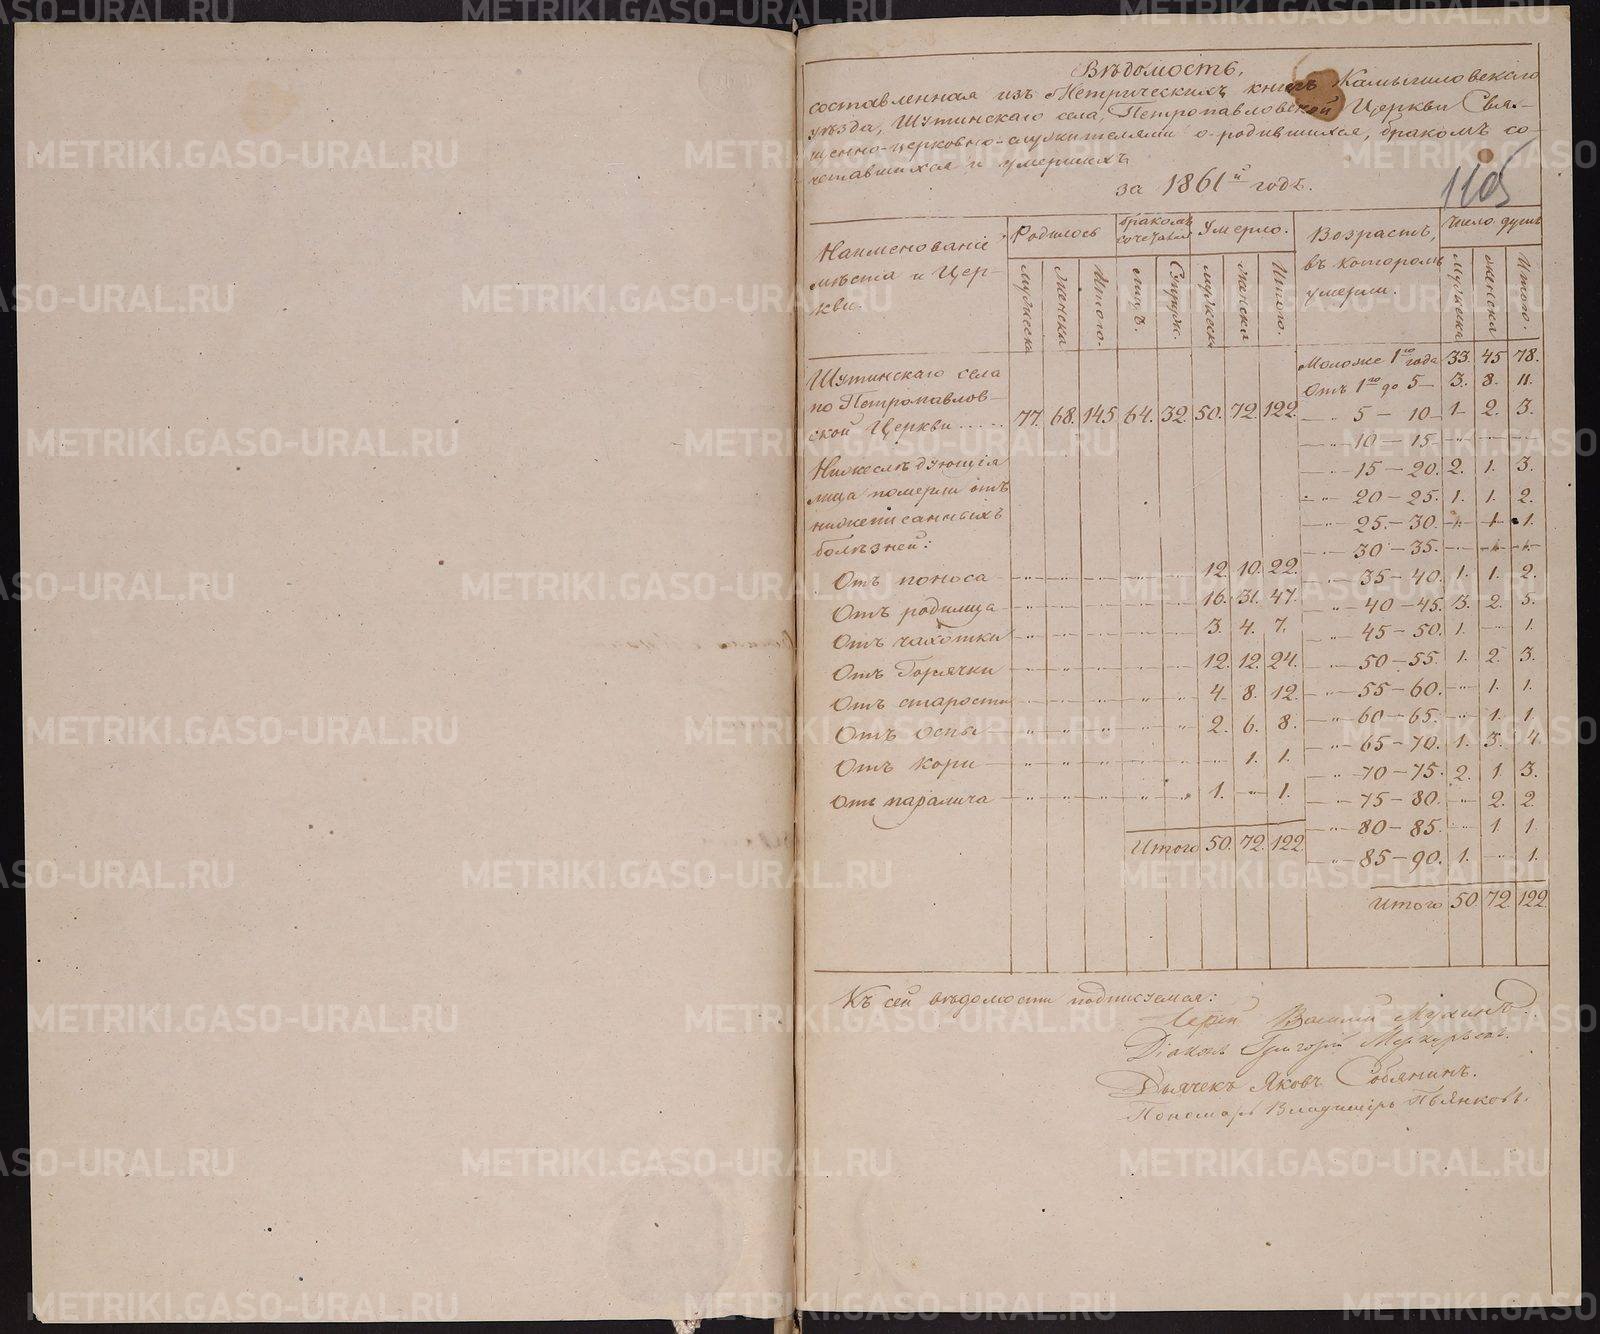 Вѣдомость,
составленная изъ Метрическихъ книгъ Камышловскаго
уѣзда, Шутинскаго села, Петропавловской Церкви Свя-
щенно-церковно-служителями о родившихся, бракомъ со-
четавшихся и умершихъ
за 1861й годъ.
1105
Наименованіе
мѣста и Цер-
кви.
Родилось
Бракомъ
сочетал.
Умерло.
Возрастъ,
въ которомъ
умерли.
Число душъ
Мужеска Женска Итого. лицъ. Супруж. мужеска Женска Итого. Мужеска женска Итого.
Шутинскаго села
по Петропавлов-
ской Церкви ..... 77. 68. 145 64. 32. 50. 72. 122.
Нижеслѣдующія
лица померли отъ
нижеписанныхъ
болѣзней:
Отъ поноса 12. 10. 22.
Отъ родимца 16. 31. 47.
Отъ чахотки 3. 4. 7.
Отъ Горячки 12. 12. 24.
Отъ старости 4. 8. 12.
Отъ Оспы 2. 6. 8.
Отъ кори „ 1. 1.
Отъ паралича 1. „ 1.
Итого 50. 72. 122
Моложе 1го года 33. 45 78.
Отъ 1го до 5 3. 8. 11.
„ 5 – 10 1. 2. 3.
„ 10 – 15 „ „ „
„ 15 – 20. 2. 1. 3.
„ 20 – 25. 1. 1. 2.
„ 25. – 30. „ 1 1.
„ 30 – 35. „ „ „
„ 35 – 40. 1. 1. 2.
„ 40 – 45. 3. 2. 5.
„ 45 – 50. 1. „ 1.
„ 50 – 55. 1. 2. 3.
„ 55 – 60. „ 1. 1.
„ 60 – 65. „ 1. 1.
„ 65 – 70. 1. 3. 4
„ 70 – 75. 2. 1. 3.
„ 75 – 80. „ 2. 2
„ 80 – 85. „ 1. 1.
„ 85 – 90. 1. „ 1.
Итого 50 72 122
Къ сей вѣдомости подписуемся:
Іерей Василій Мухинъ
Діаконъ Григорій Меркурьевъ.
Дьячекъ Яковъ Собянинъ.
Пономарь Владиміръ Пьянковъ.
METRIKI.GASO-URAL.RU